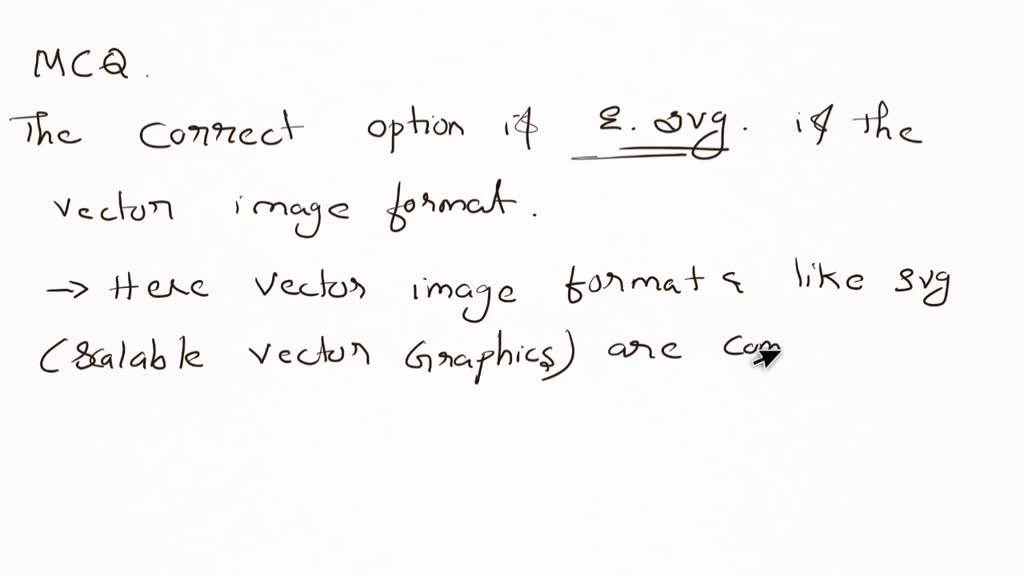 MCQ.
The correct option is E. svg. is the
vector image format.
→ Here vector image formats like svg
(Scalable vector Graphics) are com